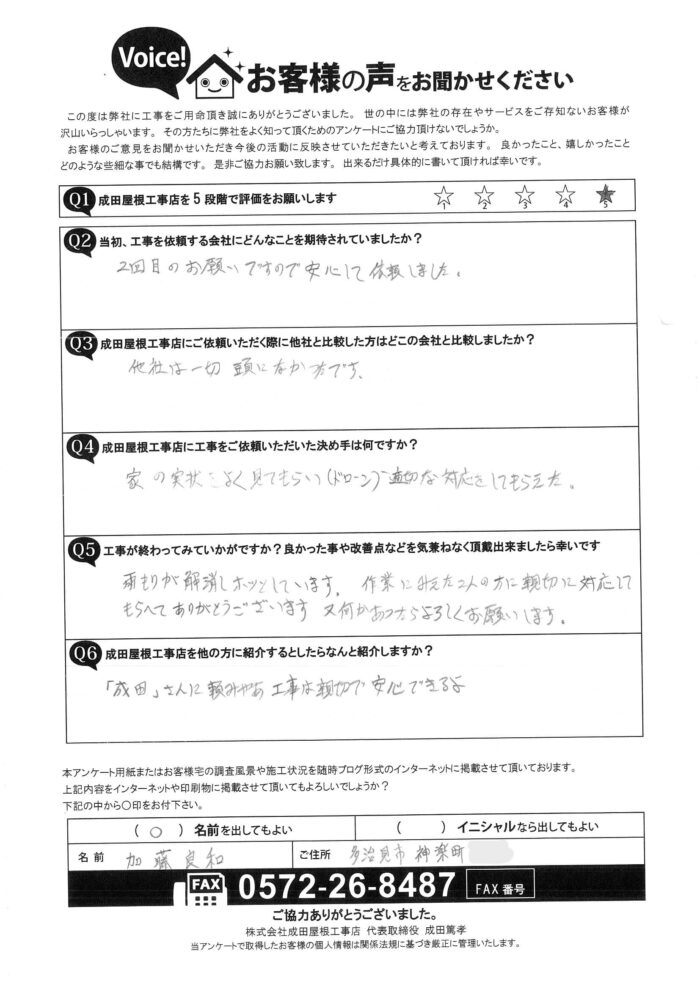 Voice!
お客様の声をお聞かせください
この度は弊社に工事をご用命頂き誠にありがとうございました。世の中には弊社の存在やサービスをご存知ないお客様が
沢山いらっしゃいます。その方たちに弊社をよく知って頂くためのアンケートにご協力頂けないでしょうか。
お客様のご意見をお聞かせいただき今後の活動に反映させていただきたいと考えております。良かったこと、嬉しかったこと
どのような些細な事でも結構です。是非ご協力お願い致します。出来るだけ具体的に書いて頂ければ幸いです。
Q1 成田屋根工事店を5段階で評価をお願いします
1 2 3 4 5
Q2 当初、工事を依頼する会社にどんなことを期待されていましたか？
2回目のお願いですので安心して依頼しました。
Q3 成田屋根工事店にご依頼いただく際に他社と比較した方はどこの会社と比較しましたか？
他社は一切頭になかったです。
Q4 成田屋根工事店に工事をご依頼いただいた決め手は何ですか？
家の実状をよく見てもらい(ドローン)適切な対応をしてもらえた。
Q5 工事が終わってみていかがですか？良かった事や改善点などを気兼ねなく頂戴出来ましたら幸いです
雨もりが解消しホッとしています。作業にみえた2人の方に親切に対応して
もらへてありがとうございます 又何かあったらよろしくお願いします。
Q6 成田屋根工事店を他の方に紹介するとしたらなんと紹介しますか？
「成田」さんに頼みやあ 工事は親切で安心できるよ
本アンケート用紙またはお客様宅の調査風景や施工状況を随時ブログ形式のインターネットに掲載させて頂いております。
上記内容をインターネットや印刷物に掲載させて頂いてもよろしいでしょうか？
下記の中から〇印をお付下さい。
( ○ ) 名前を出してもよい ( ) イニシャルなら出してもよい
名前 加藤良和 ご住所 多治見市神楽町
FAX 0572-26-8487 FAX番号
ご協力ありがとうございました。
株式会社成田屋根工事店 代表取締役 成田篤孝
当アンケートで取得したお客様の個人情報は関係法規に基づき厳正に管理いたします。